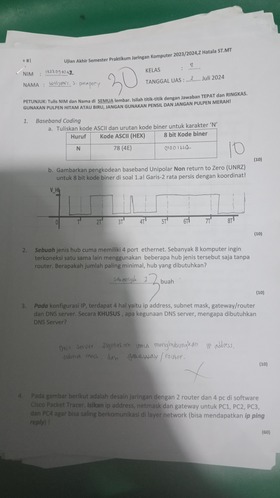 Ujian Akhir Semester Praktikum Jaringan Komputer 2023/2024,2 Hotals ST.MT
NIM :
KELAS : B
NAMA :
30
TANGGAL UAS : 2 Juli 2024
PETUNJUK: Tulis NIM dan Nama di SEMUA lembar. Isilah titik-titik dengan Jawaban TEPAT dan RINGKAS.
GUNAKAN PENSIL HITAM ATAU BIRU, JANGAN GUNAKAN PENSIL DAN JANGAN PULPEN MERAH!
1. Baseband Coding
a. Tuliskan kode ASCII dan urutan kode biner untuk karakter 'N'
Huruf Kode ASCII (HEX) 8 bit Kode biner
N 78 (4E)
10
[10]
b. Gambarkan pengkodean baseband Unipolar Non return to Zero (UNRZ)
untuk 8 bit kode biner di soal 1.a! Garis-2 rata persis dengan koordinat!
0
[10]
2. Sebuah jenis hub cuma memiliki 4 port ethernet. Sebanyak 8 komputer ingin
terkoneksi satu sama lain menggunakan beberapa hub jenis tersebut saja tanpa
router. Berapakah jumlah paling minimal, hub yang dibutuhkan?
buah
[10]
3. Pada konfigurasi IP, terdapat 4 hal yaitu ip address, subnet mask, gateway/router
dan DNS server. Secara KHUSUS, apa kegunaan DNS server, mengapa dibutuhkan
DNS Server?
ip address,
gateway / router.
[10]
4. Pada gambar berikut adalah desain jaringan dengan 2 router dan 4 pc di software
Cisco Packet Tracer. Isikan ip address, netmask dan gateway untuk PC1, PC2, PC3,
dan PC4 agar bisa saling berkomunikasi di layer network (bisa mendapatkan ip ping
reply) !
[60]